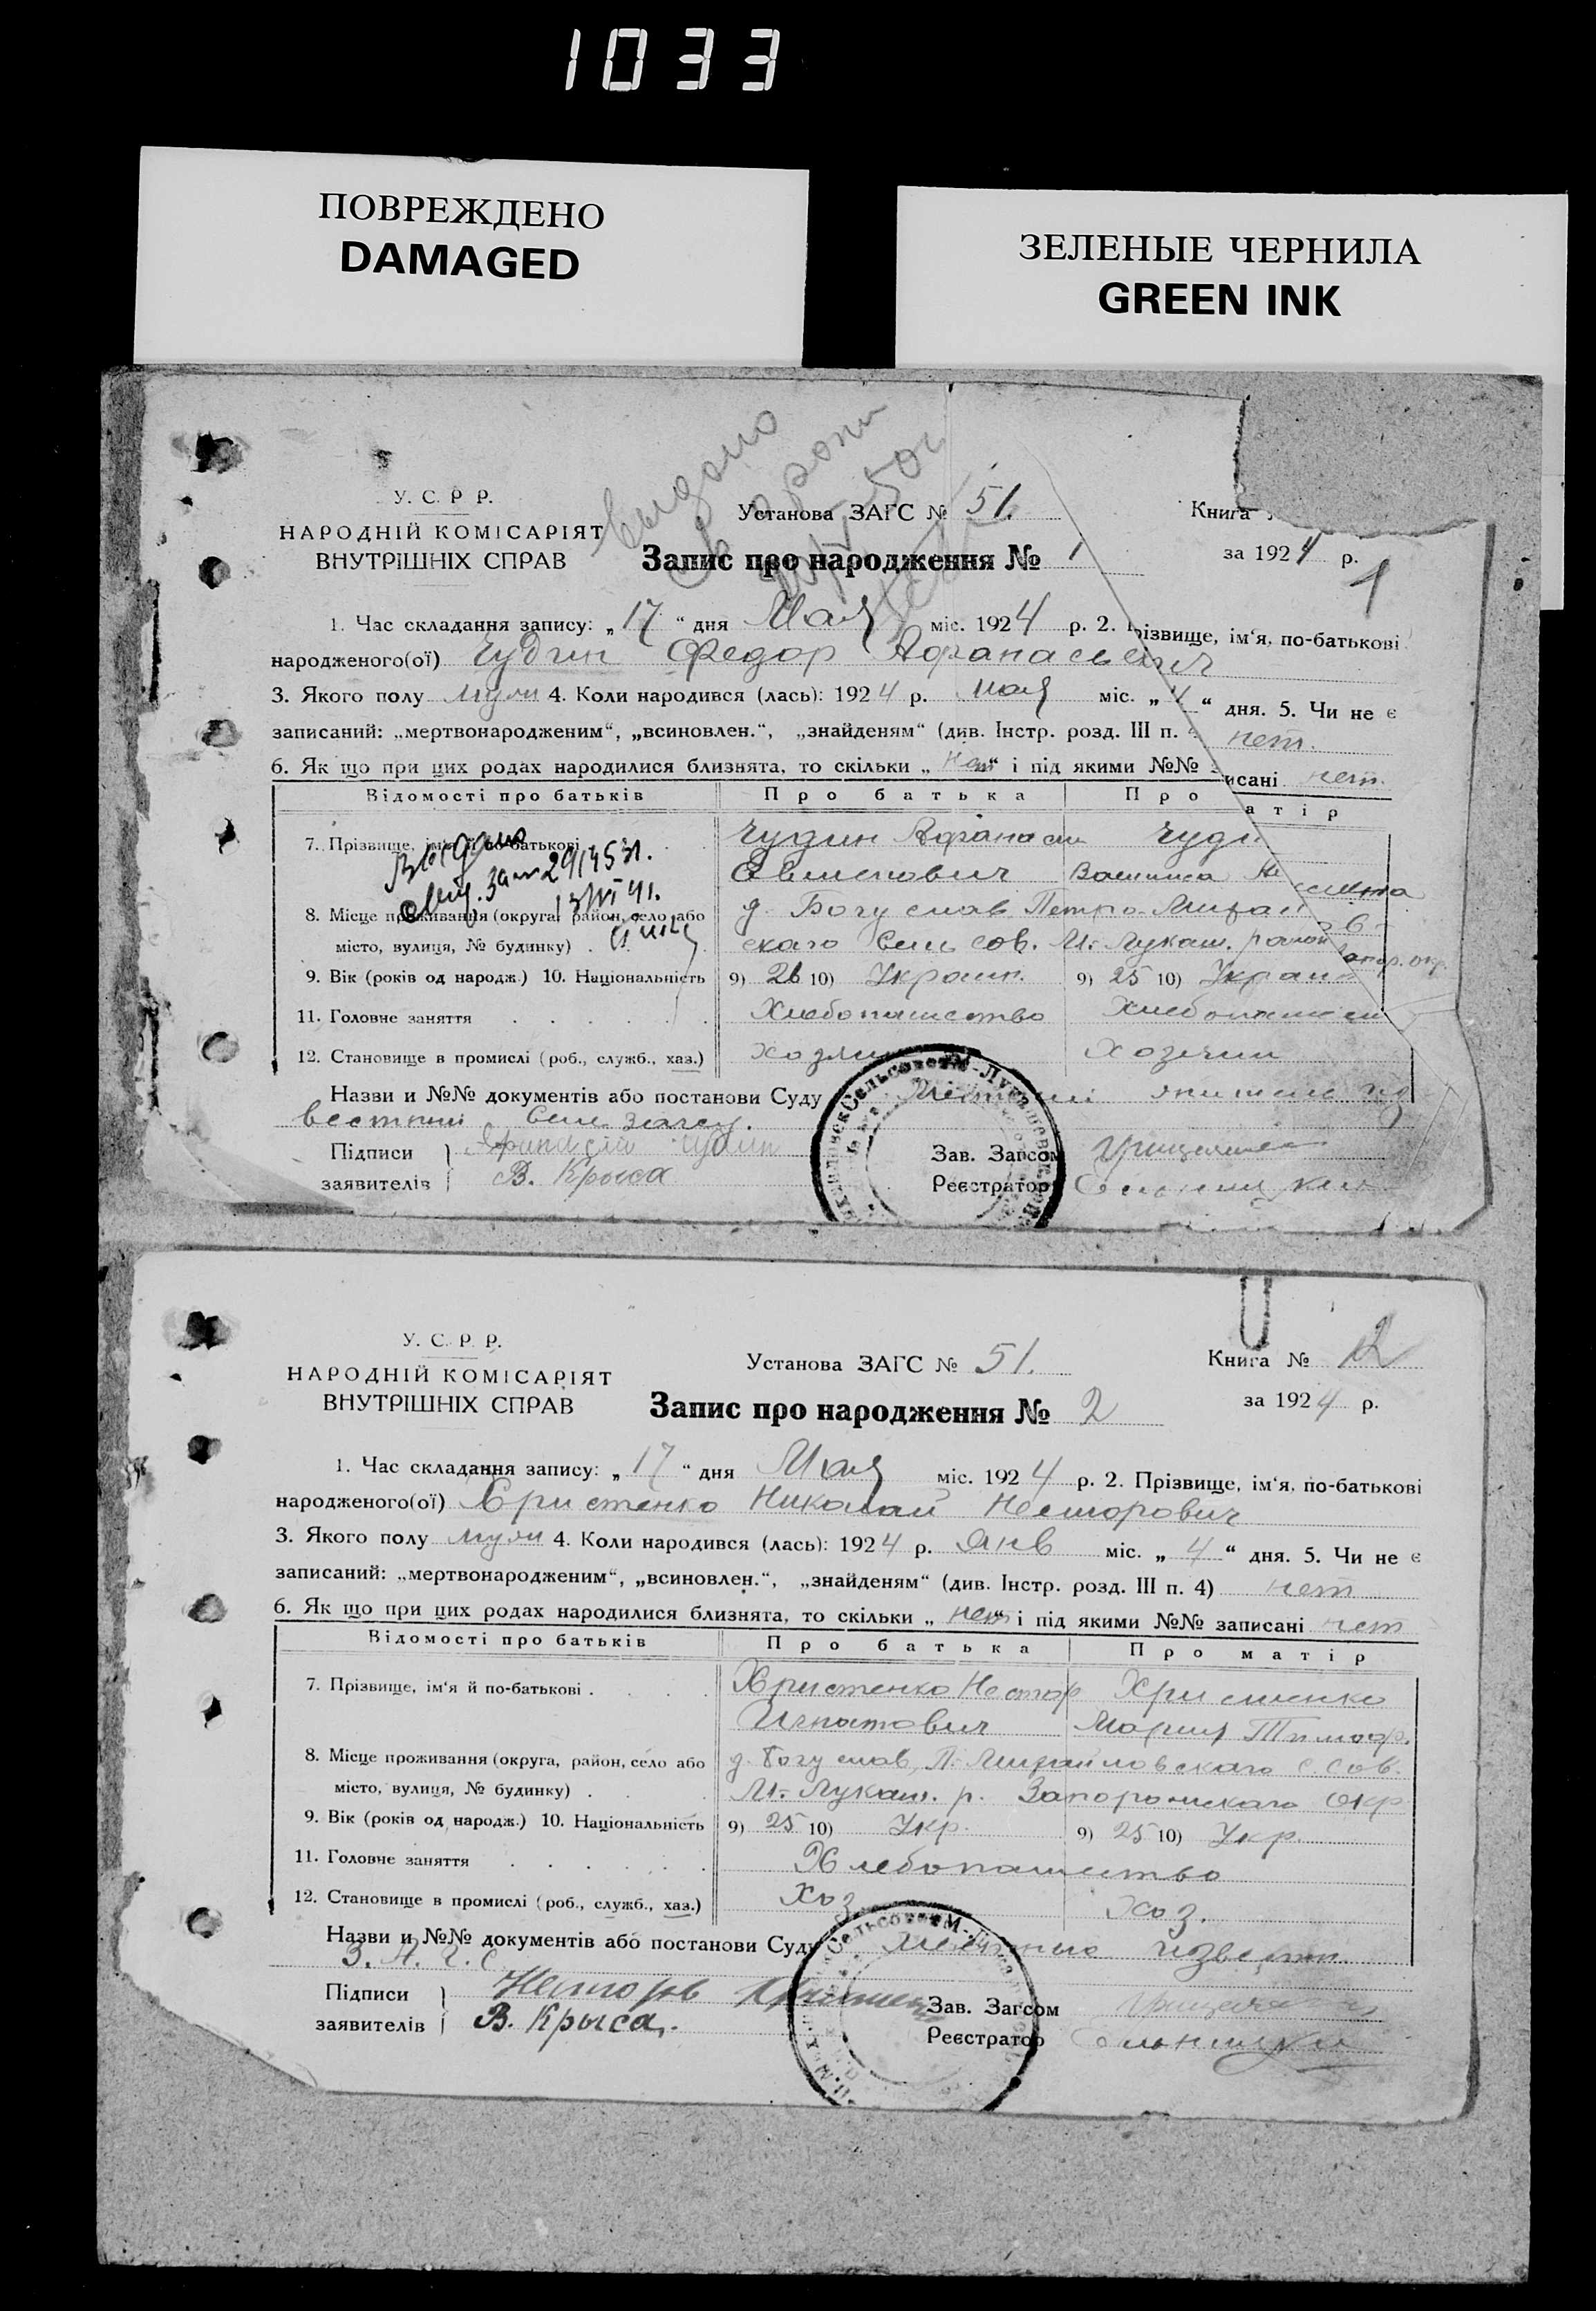 1033
ПОВРЕЖДЕНО
DAMAGED
ЗЕЛЕНЫЕ ЧЕРНИЛА
GREEN INK
У. С. Р Р.
НАРОДНІЙ КОМІСАРІЯТ
ВНУТРІШНІХ СПРАВ
Выдано
Установа ЗАГС № 51.
Книга
Запис про народження № 1
за 1924 р.
1
1. Час складання запису: „17“ дня Мая міс. 1924 р. 2. Прізвище, ім‘я, по-батькові
народженого(ої) Чудин Федор Афанасьевич
3. Якого полу муж 4. Коли народився (лась): 1924 р. мая міс. „4“ дня. 5. Чи не є
записаний: „мертвонародженим“, „всиновлен.“, „знайденям“ (див. Інстр. розд. III п. нет.
6. Як що при цих родах народилися близнята, то скільки „нет“ і під якими №№ записані нет.
Відомості про батьків Про батька Про матір
7. Прізвище, ім‘я й по-батькові Чудин Афанасий Чуди
Выдано
8. Місце проживання (округа, район, село або д. Богуслав Петро-Михай
місто, вулиця, № будинку) . скаго Сель сов. М. Лукаш. район Запор. окр.
9. Вік (років од народж.) 10. Національність 9) 26 10) Украин. 9) 25 10) Украин
11. Головне заняття . . . . . . Хлебопашество Хлебопашеш
12. Становище в промислі (роб., служб., хаз.) хозяин хозяин
Назви и №№ документів або постанови Суду
вестный
Підписи Чудин Зав. Загсом
заявителів В. Крыса Реєстратор
У. С. Р Р.
НАРОДНІЙ КОМІСАРІЯТ
ВНУТРІШНІХ СПРАВ
Установа ЗАГС № 51.
Книга № 2
Запис про народження № 2
за 1924 р.
1. Час складання запису: „17“ дня Мая міс. 1924 р. 2. Прізвище, ім‘я, по-батькові
народженого(ої) Христенко Николай Несторович
3. Якого полу муж 4. Коли народився (лась): 1924 р. Янв міс. „4“ дня. 5. Чи не є
записаний: „мертвонародженим“, „всиновлен.“, „знайденям“ (див. Інстр. розд. III п. 4) нет
6. Як що при цих родах народилися близнята, то скільки „нет“ і під якими №№ записані нет
Відомості про батьків Про батька Про матір
7. Прізвище, ім‘я й по-батькові . . . . Христенко Нестор Христенко
Игнатович Мария Тимоф.
8. Місце проживання (округа, район, село або д. Богуслав, П.-Михайловскаго С. Сов.
місто, вулиця, № будинку) . М.-Лукаш. р. Запорожскаго Окр
9. Вік (років од народж.) 10. Національність 9) 25 10) Укр. 9) 25 10) Укр.
11. Головне заняття . . . . . . Хлебопашество
12. Становище в промислі (роб., служб., хаз.) Хоз. Хоз.
Назви и №№ документів або постанови Суду
Підписи Нестор Христенко Зав. Загсом
заявителів В. Крыса. Реєстратор